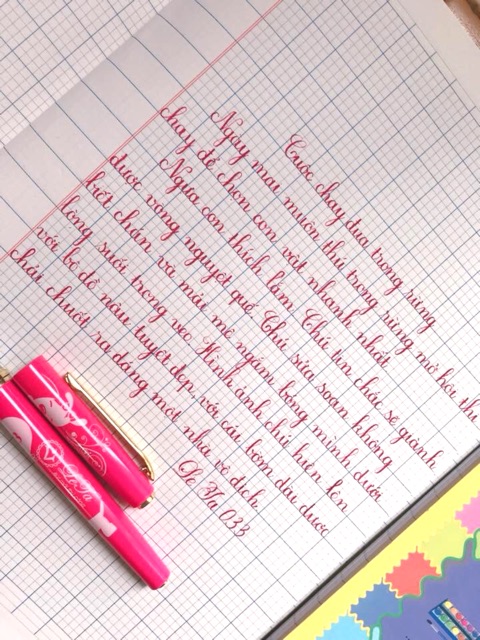 Cuộc chạy đua trong rừng
Ngày mai muôn thú trong rừng mở hội thi
chạy để chọn con vật nhanh nhất
Ngựa con thích lắm. Chú tin chắc sẽ giành
được vòng nguyệt quế. Chú sửa soạn không
biết chán và mải mê ngắm bóng mình dưới
lòng suối trong veo. Hình ảnh chú hiện lên
với bộ đồ nâu tuyệt đẹp, với cái bờm dài được
chải chuốt ra dáng một nhà vô địch
033